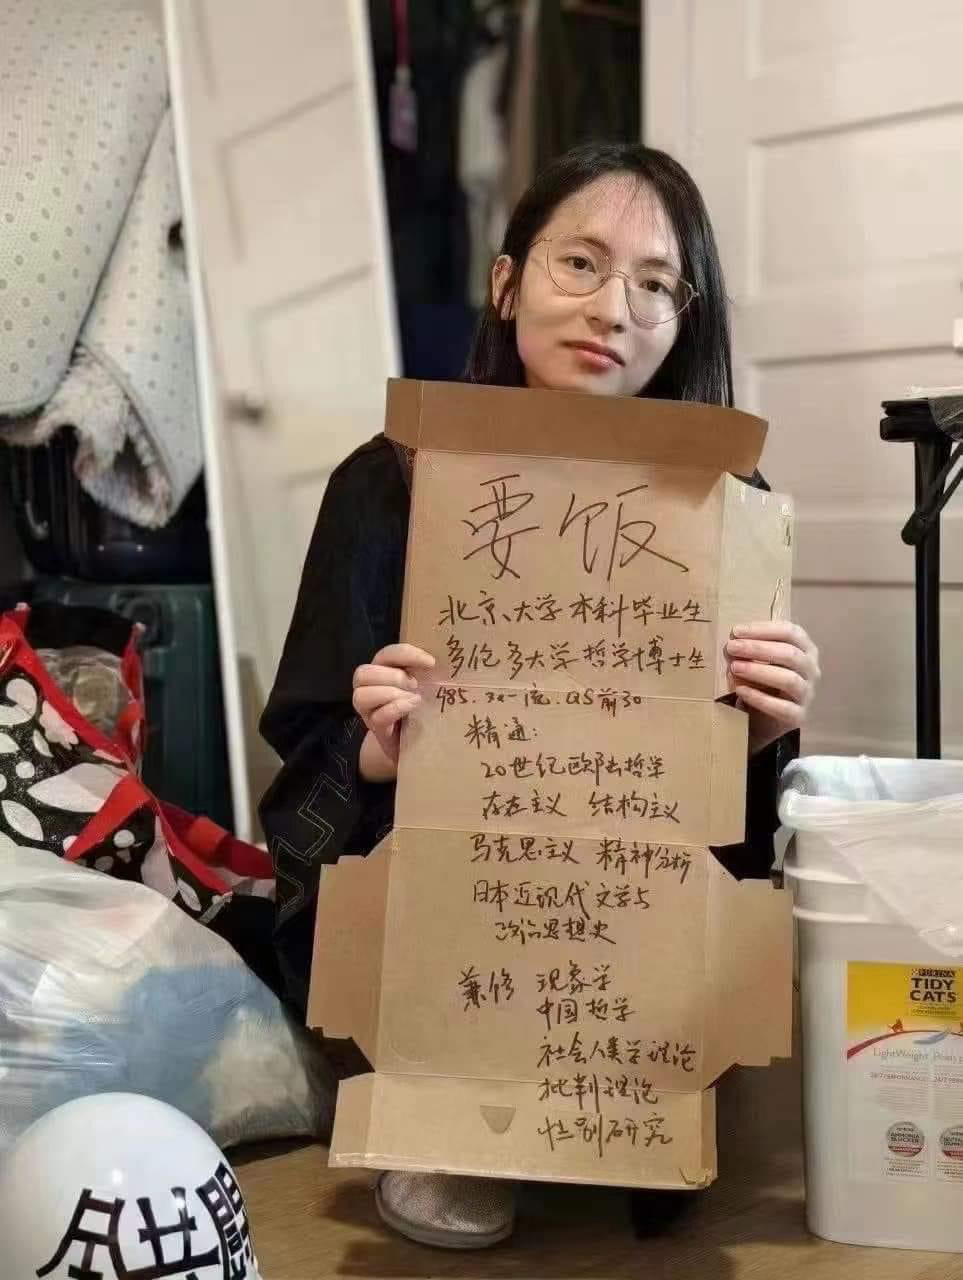 要饭
北京大学本科毕业生
多伦多大学哲学博士生
985.双一流.QS前30
精通：
20世纪欧陆哲学
存在主义 结构主义
马克思主义 精神分析
日本近现代文学与
政治思想史
兼修 现象学
中国哲学
社会人类学理论
批判理论
性别研究
PURINA
TIDY
CATS
LightWeight